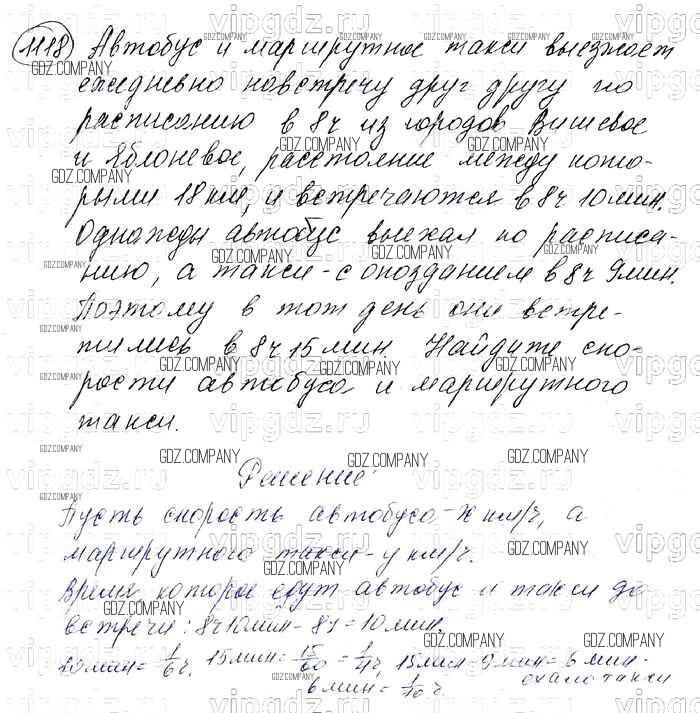 1118 Автобус и маршрутное такси выезжают
ежедневно навстречу друг другу по
расписанию в 8ч из городов Вишневое
и Яблоневое, расстояние между кото-
рыми 18 км, и встречаются в 8ч 10 мин.
Однажды автобус выехал по расписа-
нию, а такси - с опозданием в 8ч 9 мин.
Поэтому в тот день они встре-
тились в 8ч 15 мин. Найдите ско-
рости автобуса и маршрутного
такси.
Решение
Пусть скорость автобуса - x км/ч, а
маршрутного такси - y км/ч.
Время, которое едут автобус и такси до
встречи: 8ч 10 мин - 8ч = 10 мин.
10 мин = 1/6 ч, 15 мин = 15/60 = 1/4 ч, 15 мин - 9 мин = 6 мин.
6 мин = 1/10 ч ехало такси